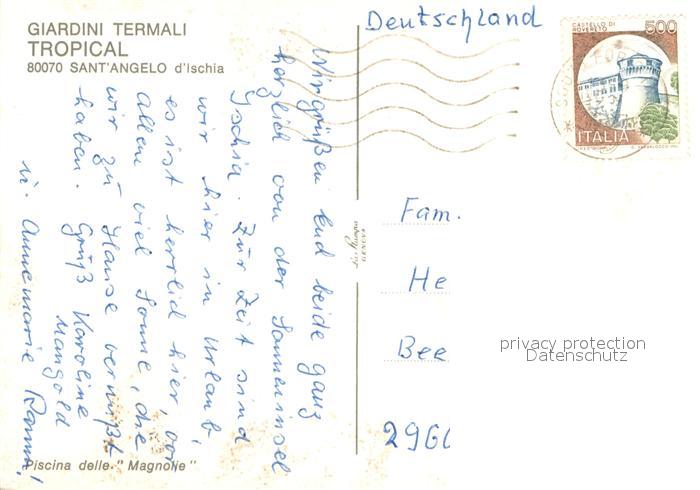 GIARDINI TERMALI
TROPICAL
80070 SANT'ANGELO d'Ischia
Deutschland
CASTELLO DI
ROVERETO
500
ITALIA
Wir grüßen Euch beide ganz
herzlich von der Sonneninsel
Ischia. Zur Zeit sind
wir hier in Urlaub,
es ist herrlich hier, vor
allem viel Sonne, die
wir zu Hause vermißt
haben. Gruß Karoline
Mangold
u. Annemarie
Fam.
He
Bee
privacy protection
Datenschutz
Piscina delle "Magnolie"
GENOVA